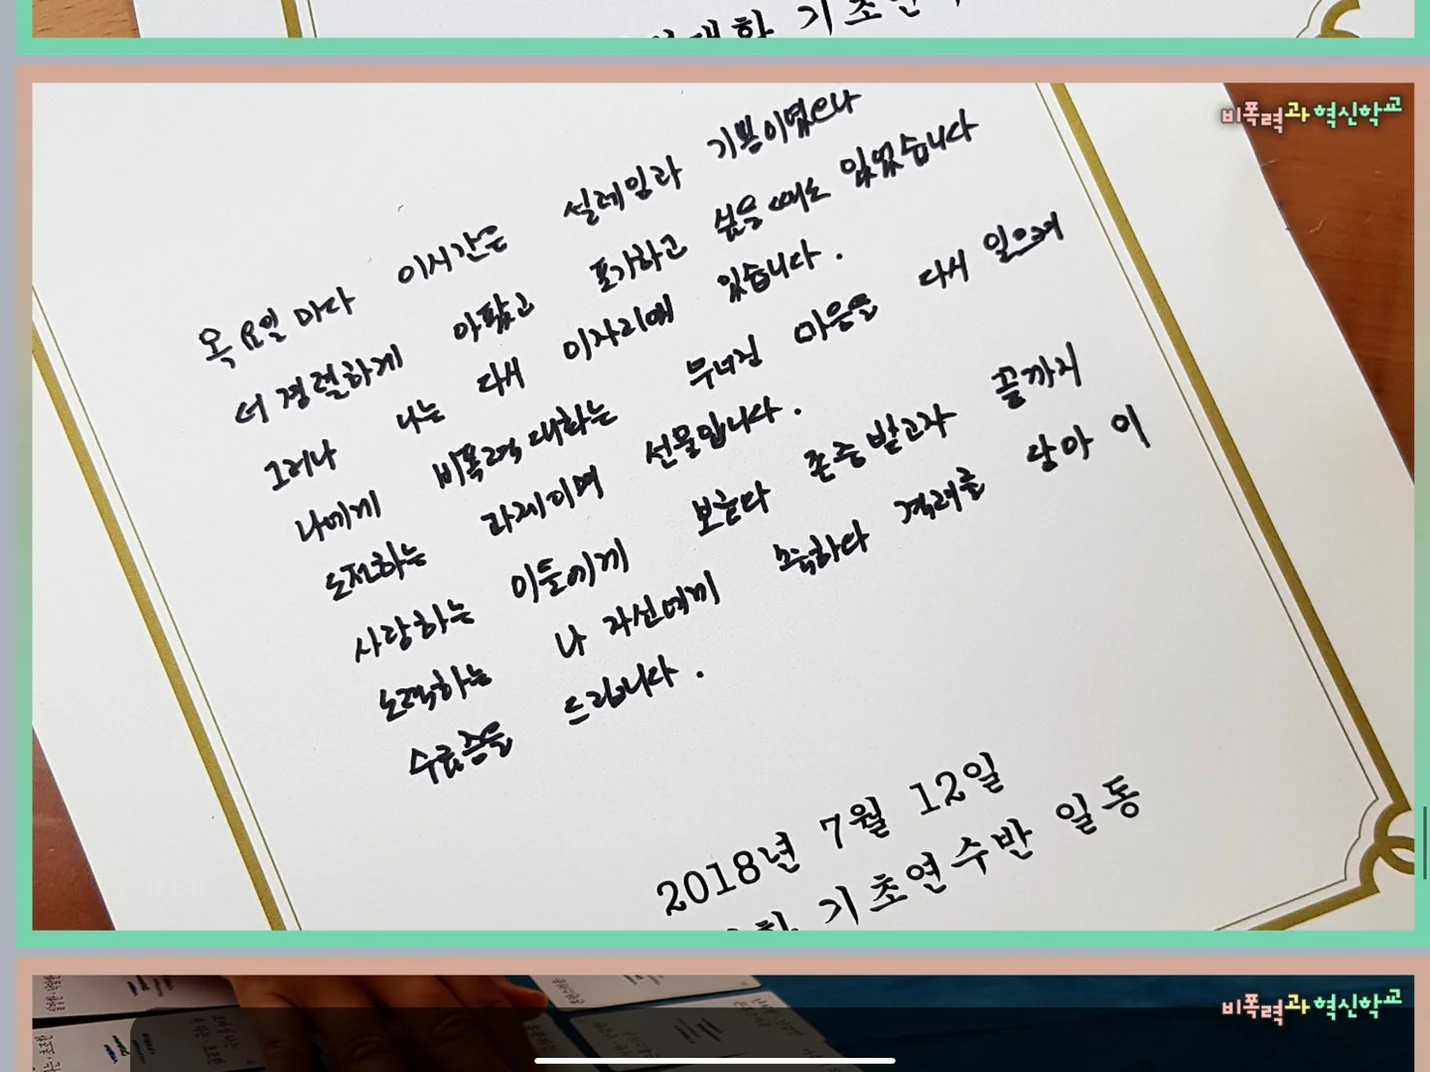 비폭력과 혁신학교
목요일 마다 이시간은 설레임과 기쁨이였으나
더 격렬하게 아팠고 포기하고 싶을때도 있었습니다
그러나 나는 다시 이자리에 있습니다.
나에게 비폭력대화는 무너진 마음을 다시 일으켜
도전하는 과제이며 선물입니다.
사랑하는 이들에게 보단다 존중받고자 끝까지
노력하는 나 자신에게 축하와 격려를 담아 이
수료증을 드립니다.
2018년 7월 12일
기초연수반 일동
비폭력과 혁신학교